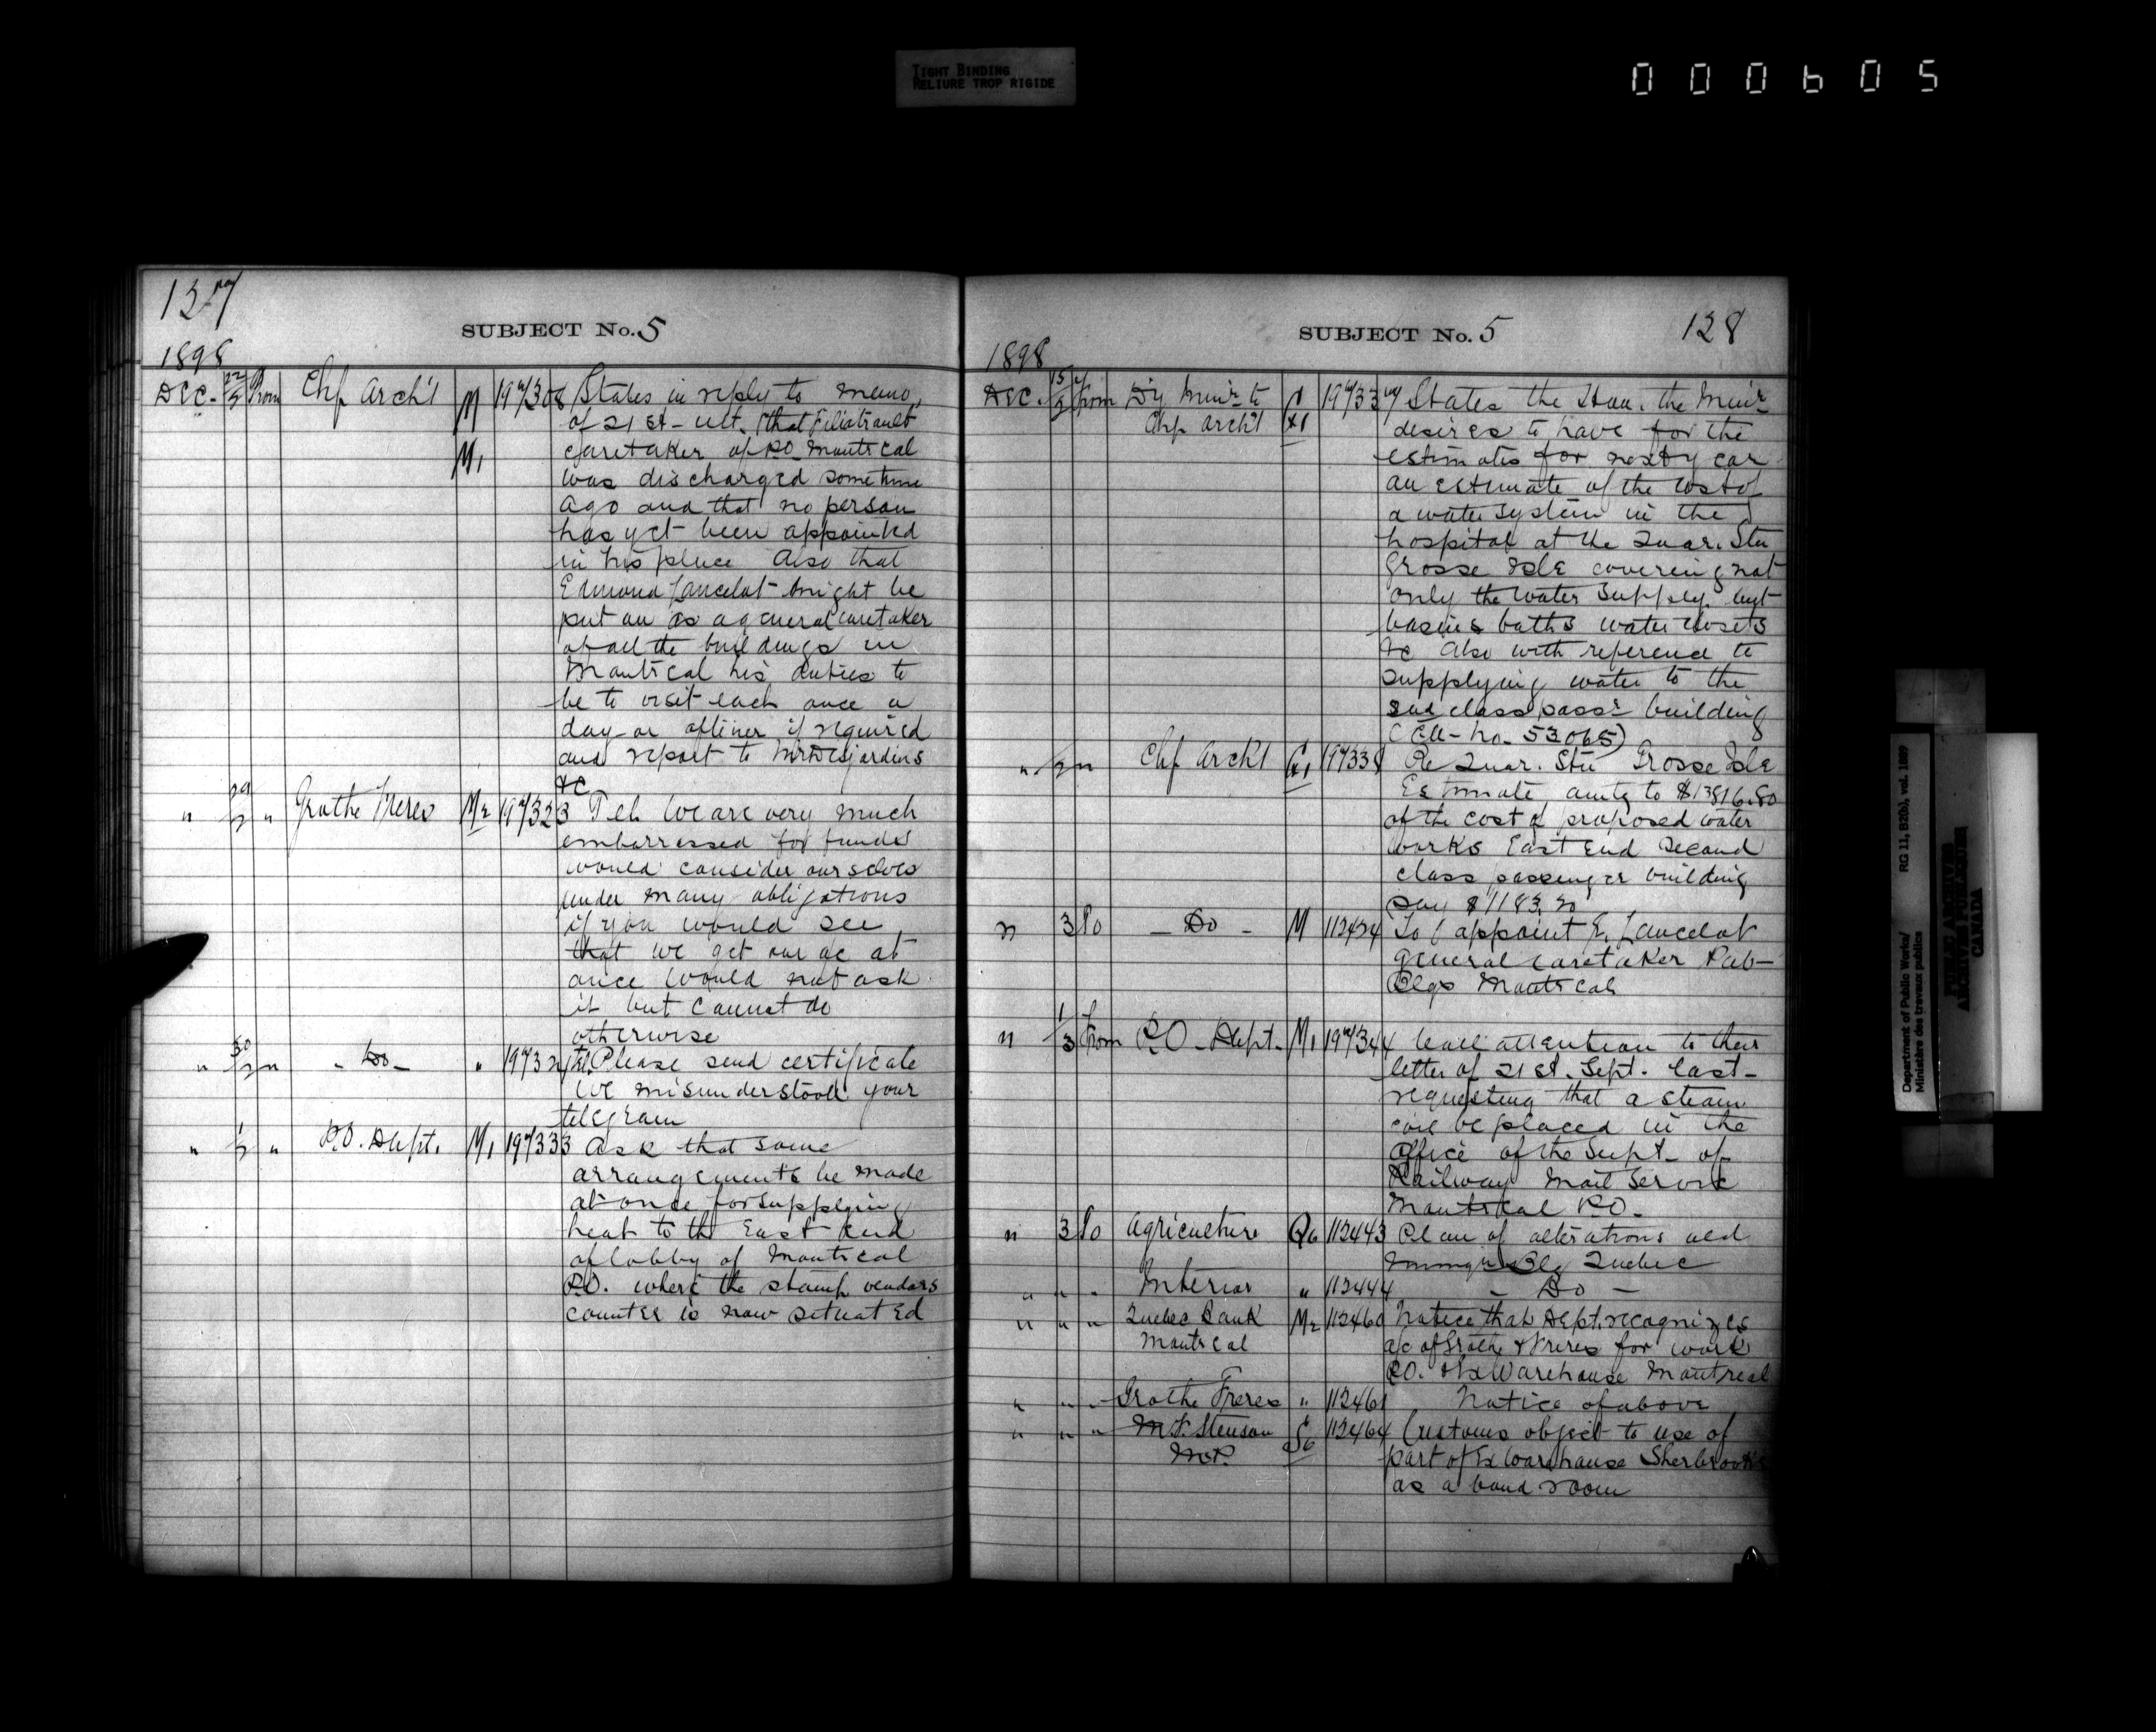 TIGHT BINDING
RELIURE TROP RIGIDE
000605
127
SUBJECT No. 5
1898
Dec. 22/2 From Chf Arch't M 197308 States in reply to memo,
of 21st ult. that Filiatrault
M1 caretaker of P.O. Montreal
was discharged sometime
ago and that no person
has yet been appointed
in his place Also that
Edmond Lancelot might be
put on as a general caretaker
of all the buildings in
Montreal his duties to
be to visit each once a
day or oftener if required
and report to Mr Desjardins
&c
" 29/2 " Grothe Freres M2 197323 Tel. We are very much
embarressed for funds
would consider ourselves
under many obligations
if you would see
that we get our ac at
once Would not ask
it but cannot do
otherwise
" 30/2 " - Do - " 19732 Tel. Please send certificate
We misunderstood your
telegram
" 1/2 " P.O. Dept. M1 197333 Ask that some
arrangements be made
at once for supplying
heat to the East End
of lobby of Montreal
P.O. where the stamp vendors
counter is now situated
SUBJECT No. 5
128
1898
Dec. From Dy Minr to 197337 States the Hon. the Minr
Chf Arch't desires to have for the
estimates for next year
an estimate of the cost of
a water system in the
hospital at the Quar. Stn
Grosse Isle covering not
only the water supply but
basins baths water closets
&c Also with reference to
supplying water to the
2nd class passr building
(No. 53065)
" " Chf Arch't 197338 Re Quar. Stn Grosse Isle
Estimate amtg to $13816.80
of the cost of proposed water
works East End Second
class passenger building
say $1183.20
" 3 To - Do - M 112424 To appoint E. Lancelot
general caretaker Pub-
Blgs Montreal
" 1/3 From P.O. Dept. M1 197344 Call attention to their
letter of 21st. Sept. last
requesting that a steam
coil be placed in the
office of the Supt. of
Railway Mail Service
Montreal P.O.
" 3 To Agriculture Q6 112443 Plan of alterations old
Immigrn Blg Quebec
" " " Interior " 112444 - Do -
" " " Quebec Bank M2 112460 Notice that Dept. recognizes
Montreal a/c of Grothe & Freres for work
P.O. & Ex Warehouse Montreal
" " " Grothe Freres " 112461 Notice of above
" " " M.T. Stenson S6 112464 Customs object to use of
M.P. part of Ex Warehouse Sherbrooke
as a band room
Department of Public Works/ RG 11, B2(b), vol. 1889
Ministère des travaux publics
PUBLIC ARCHIVES
ARCHIVES PUBLIQUES
CANADA